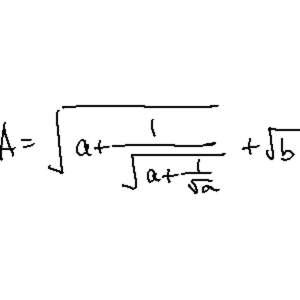 A = \sqrt{a + \frac{1}{\sqrt{a + \frac{1}{\sqrt{a}}}}} + \sqrt{b}